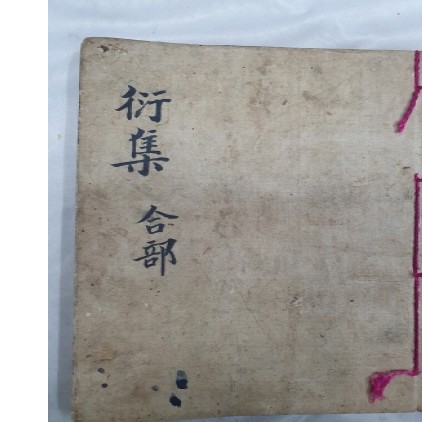 衍集
合部